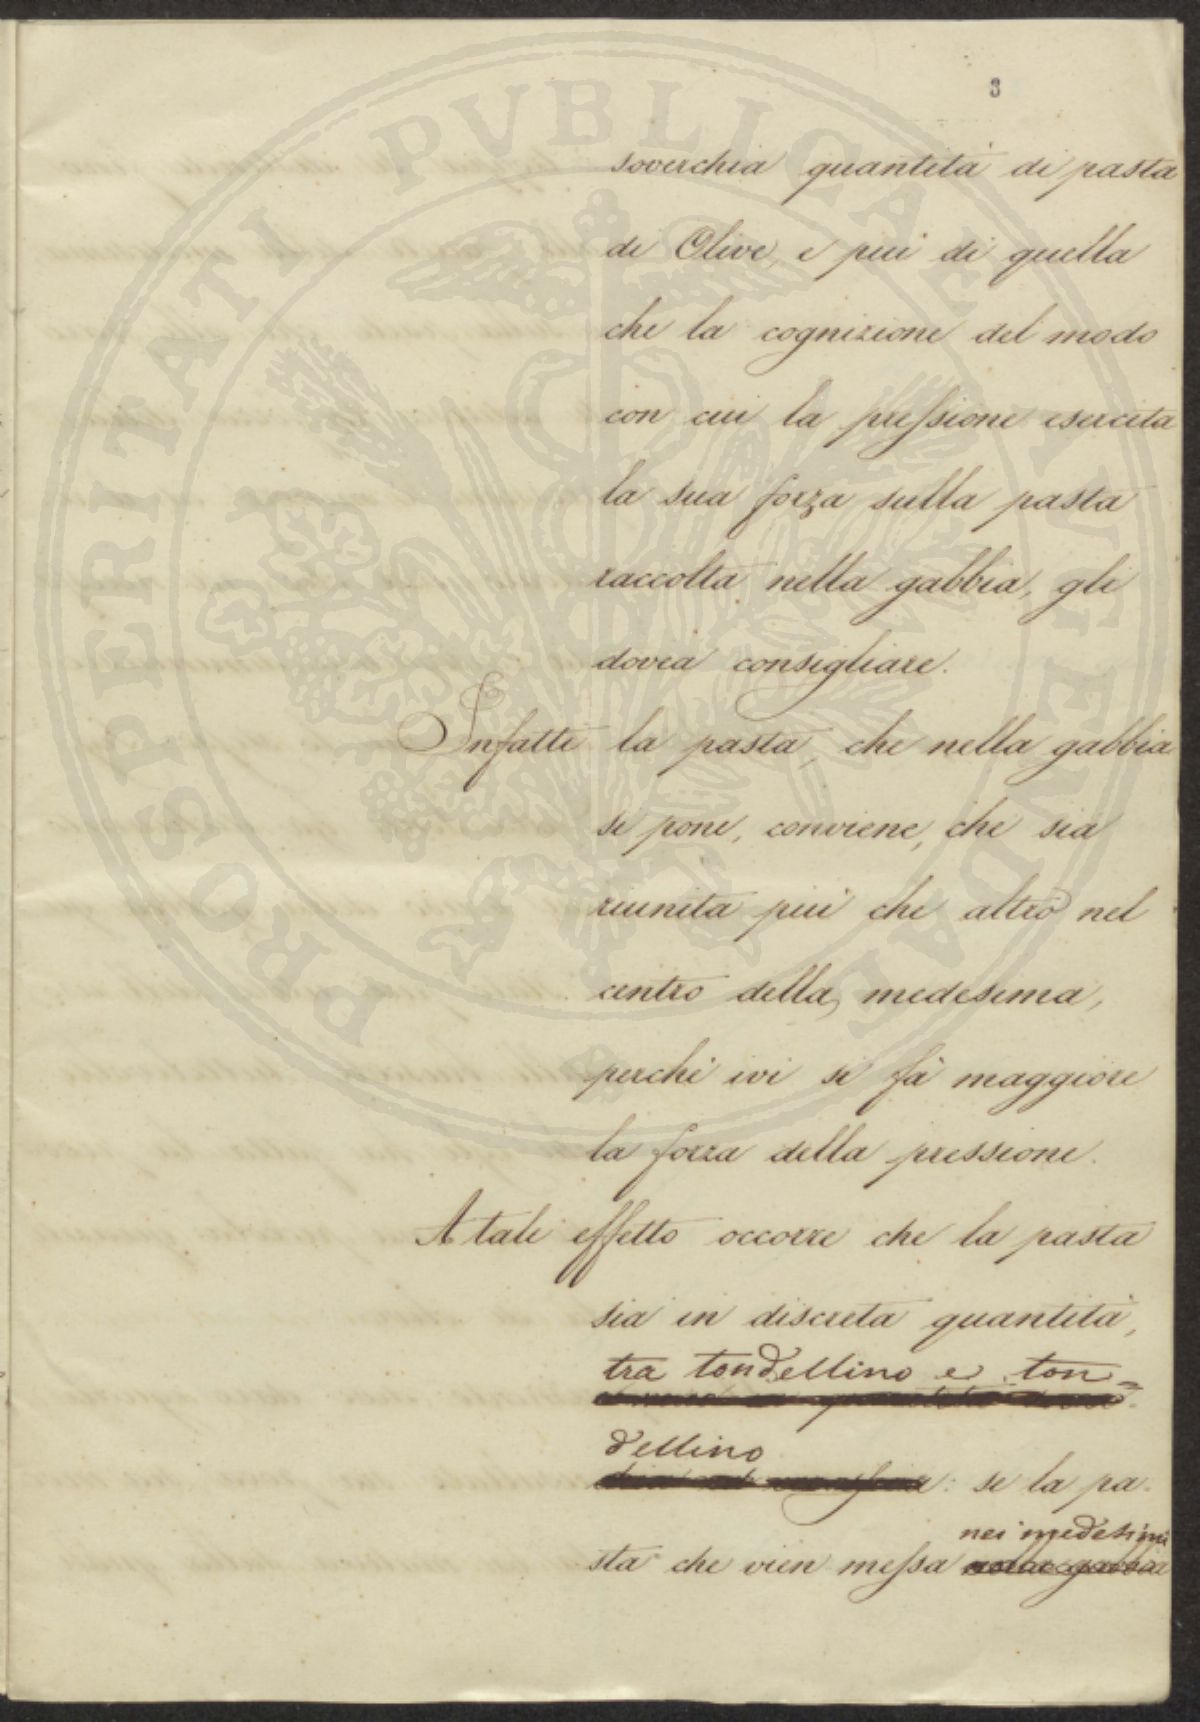 3
soverchia quantità di pasta
di Olive, e più di quella
che la cognizione del modo
con cui la pressione esercita
la sua forza sulla pasta
raccolta nella gabbia, gli
dovea consigliare.
Infatti la pasta, che nella gabbia
si pone, conviene, che sia
riunita più che altro nel
centro della medesima,
perchè ivi si fà maggiore
la forza della pressione.
A tale effetto occorre che la pasta
sia in discreta quantità,
tra tondellino e ton=
dellino
: se la pa-
nei medesimi
sta che vien messa nella gabbia
PROSPERITATI PVBLICAE AVGENDAE